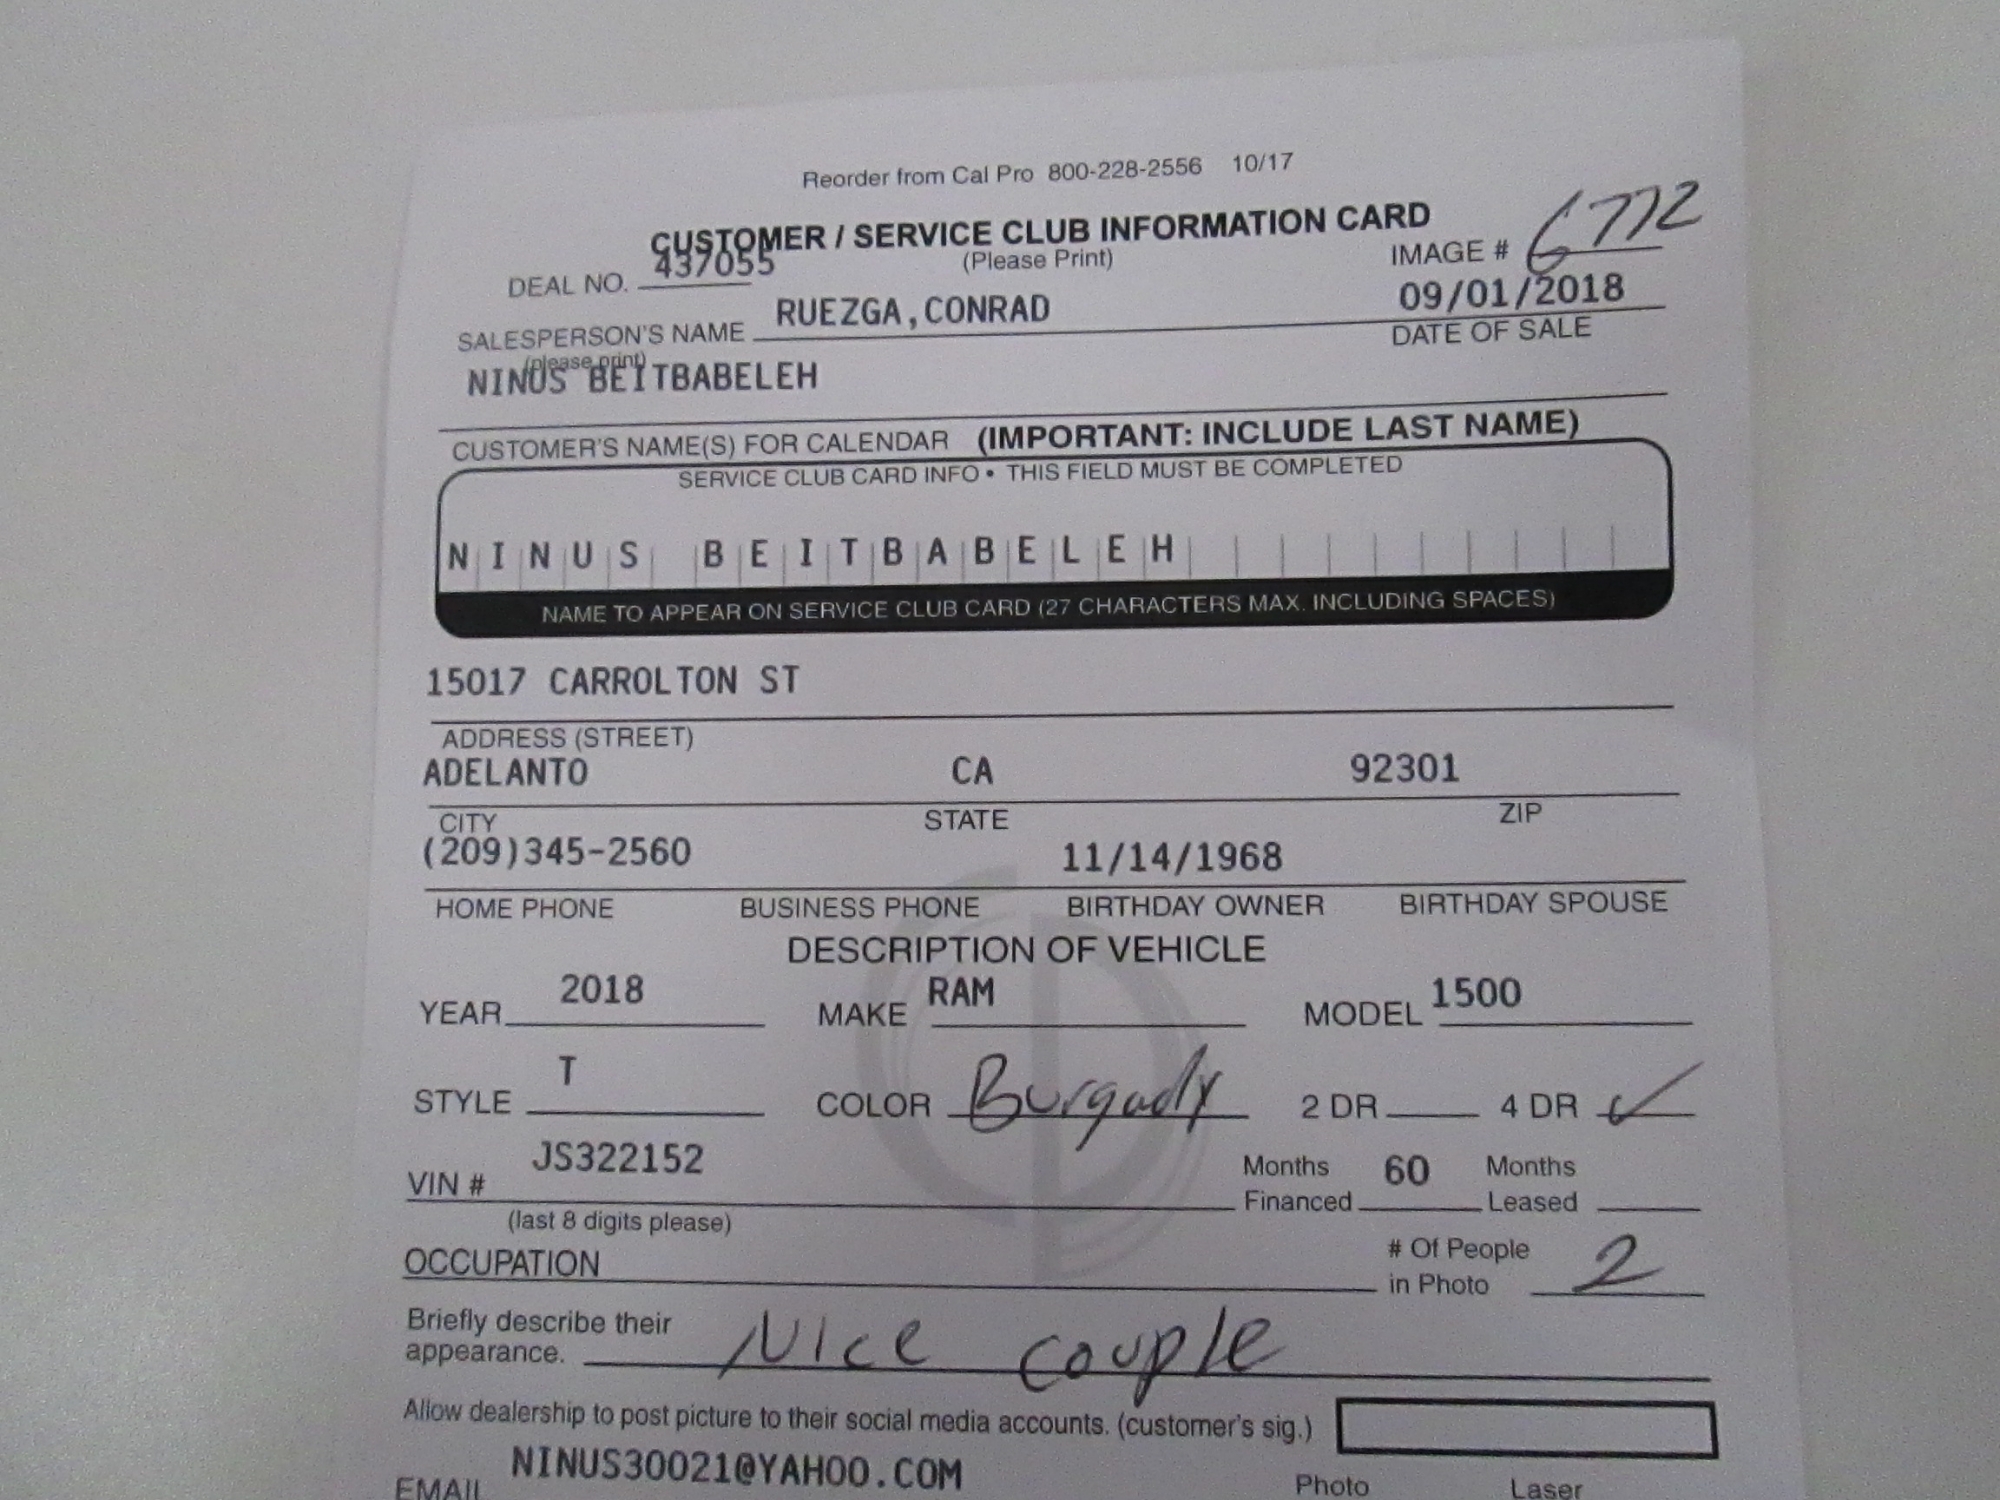 Reorder from Cal Pro 800-228-2556 10/17
CUSTOMER / SERVICE CLUB INFORMATION CARD
(Please Print)
IMAGE # 6772
DEAL NO. 437055
SALESPERSON'S NAME RUEZGA,CONRAD
(please print)
09/01/2018
DATE OF SALE
NINUS BEITBABELEH
CUSTOMER'S NAME(S) FOR CALENDAR (IMPORTANT: INCLUDE LAST NAME)
SERVICE CLUB CARD INFO • THIS FIELD MUST BE COMPLETED
NINUS BEITBABELEH
NAME TO APPEAR ON SERVICE CLUB CARD (27 CHARACTERS MAX. INCLUDING SPACES)
15017 CARROLTON ST
ADDRESS (STREET)
ADELANTO CA 92301
CITY STATE ZIP
(209)345-2560 11/14/1968
HOME PHONE BUSINESS PHONE BIRTHDAY OWNER BIRTHDAY SPOUSE
DESCRIPTION OF VEHICLE
YEAR 2018 MAKE RAM MODEL 1500
STYLE T COLOR Burgady 2 DR 4 DR ✓
VIN # JS322152 Months Financed 60 Months Leased
(last 8 digits please)
OCCUPATION # Of People in Photo 2
Briefly describe their
appearance. Nice couple
Allow dealership to post picture to their social media accounts. (customer's sig.)
EMAIL NINUS30021@YAHOO.COM Photo Laser